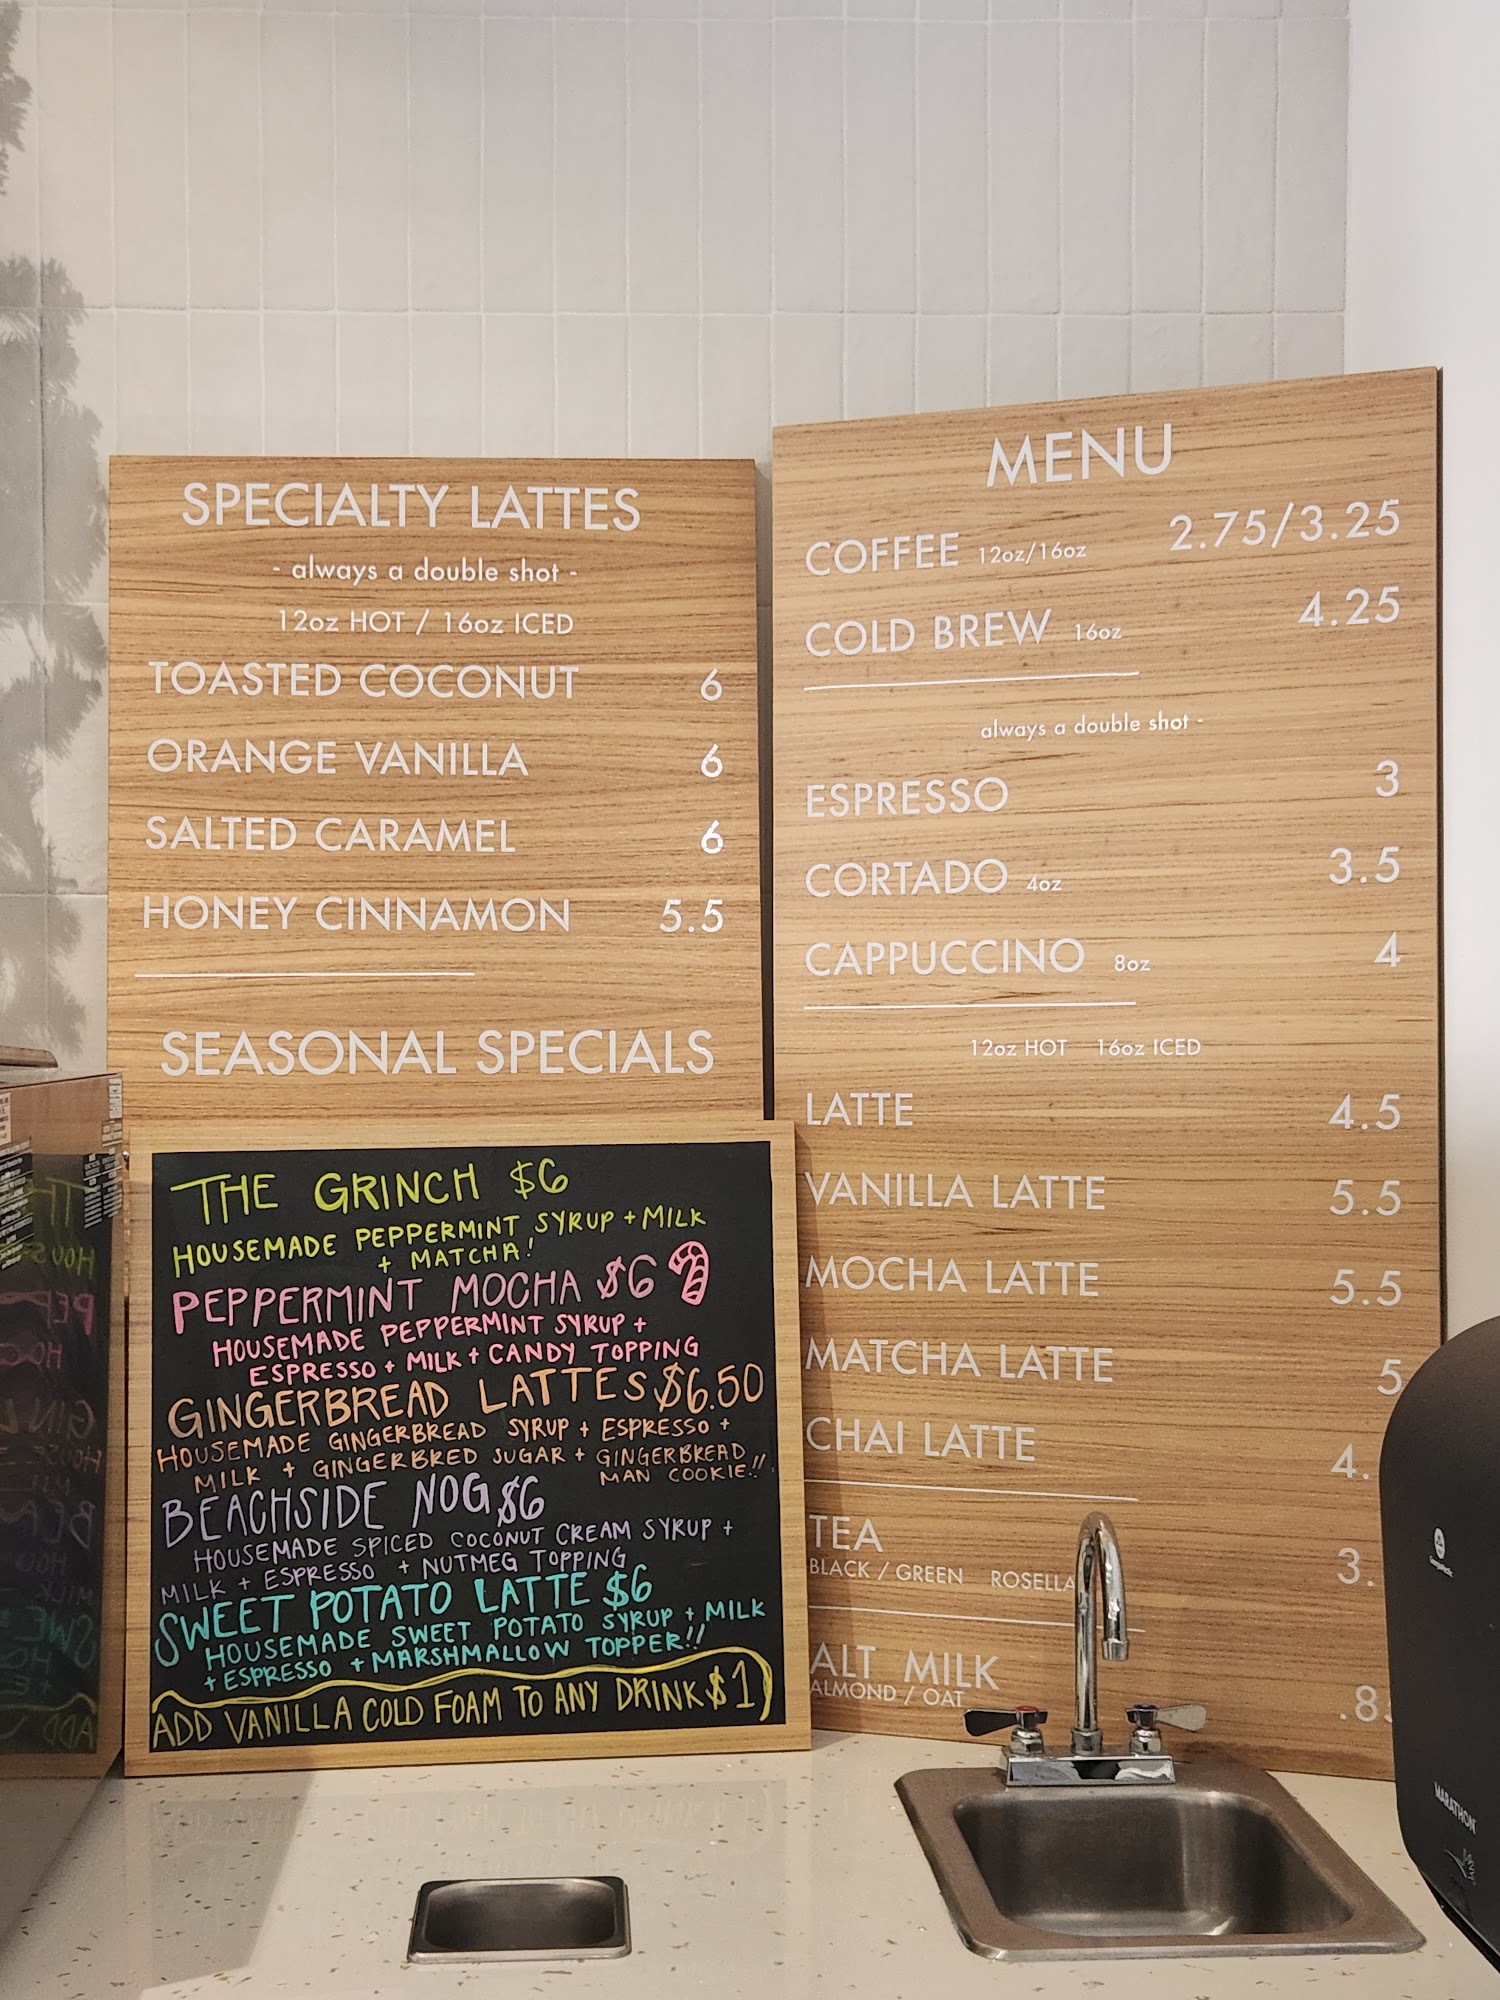 SPECIALTY LATTES
- always a double shot -
12oz HOT / 16oz ICED
TOASTED COCONUT 6
ORANGE VANILLA 6
SALTED CARAMEL 6
HONEY CINNAMON 5.5
SEASONAL SPECIALS
THE GRINCH $6
HOUSEMADE PEPPERMINT SYRUP + MILK
+ MATCHA!
PEPPERMINT MOCHA $6
HOUSEMADE PEPPERMINT SYRUP +
ESPRESSO + MILK + CANDY TOPPING
GINGERBREAD LATTES $6.50
HOUSEMADE GINGERBREAD SYRUP + ESPRESSO +
MILK + GINGERBRED SUGAR + GINGERBREAD
MAN COOKIE!!
BEACHSIDE NOG $6
HOUSEMADE SPICED COCONUT CREAM SYRUP +
MILK + ESPRESSO + NUTMEG TOPPING
SWEET POTATO LATTE $6
HOUSEMADE SWEET POTATO SYRUP + MILK
+ ESPRESSO + MARSHMALLOW TOPPER!!
ADD VANILLA COLD FOAM TO ANY DRINK $1
MENU
COFFEE 12oz/16oz 2.75/3.25
COLD BREW 16oz 4.25
always a double shot -
ESPRESSO 3
CORTADO 4oz 3.5
CAPPUCCINO 8oz 4
12oz HOT 16oz ICED
LATTE 4.5
VANILLA LATTE 5.5
MOCHA LATTE 5.5
MATCHA LATTE 5
CHAI LATTE 4.
TEA 3.
BLACK / GREEN ROSELLA
ALT MILK .8
ALMOND / OAT
MARATHON